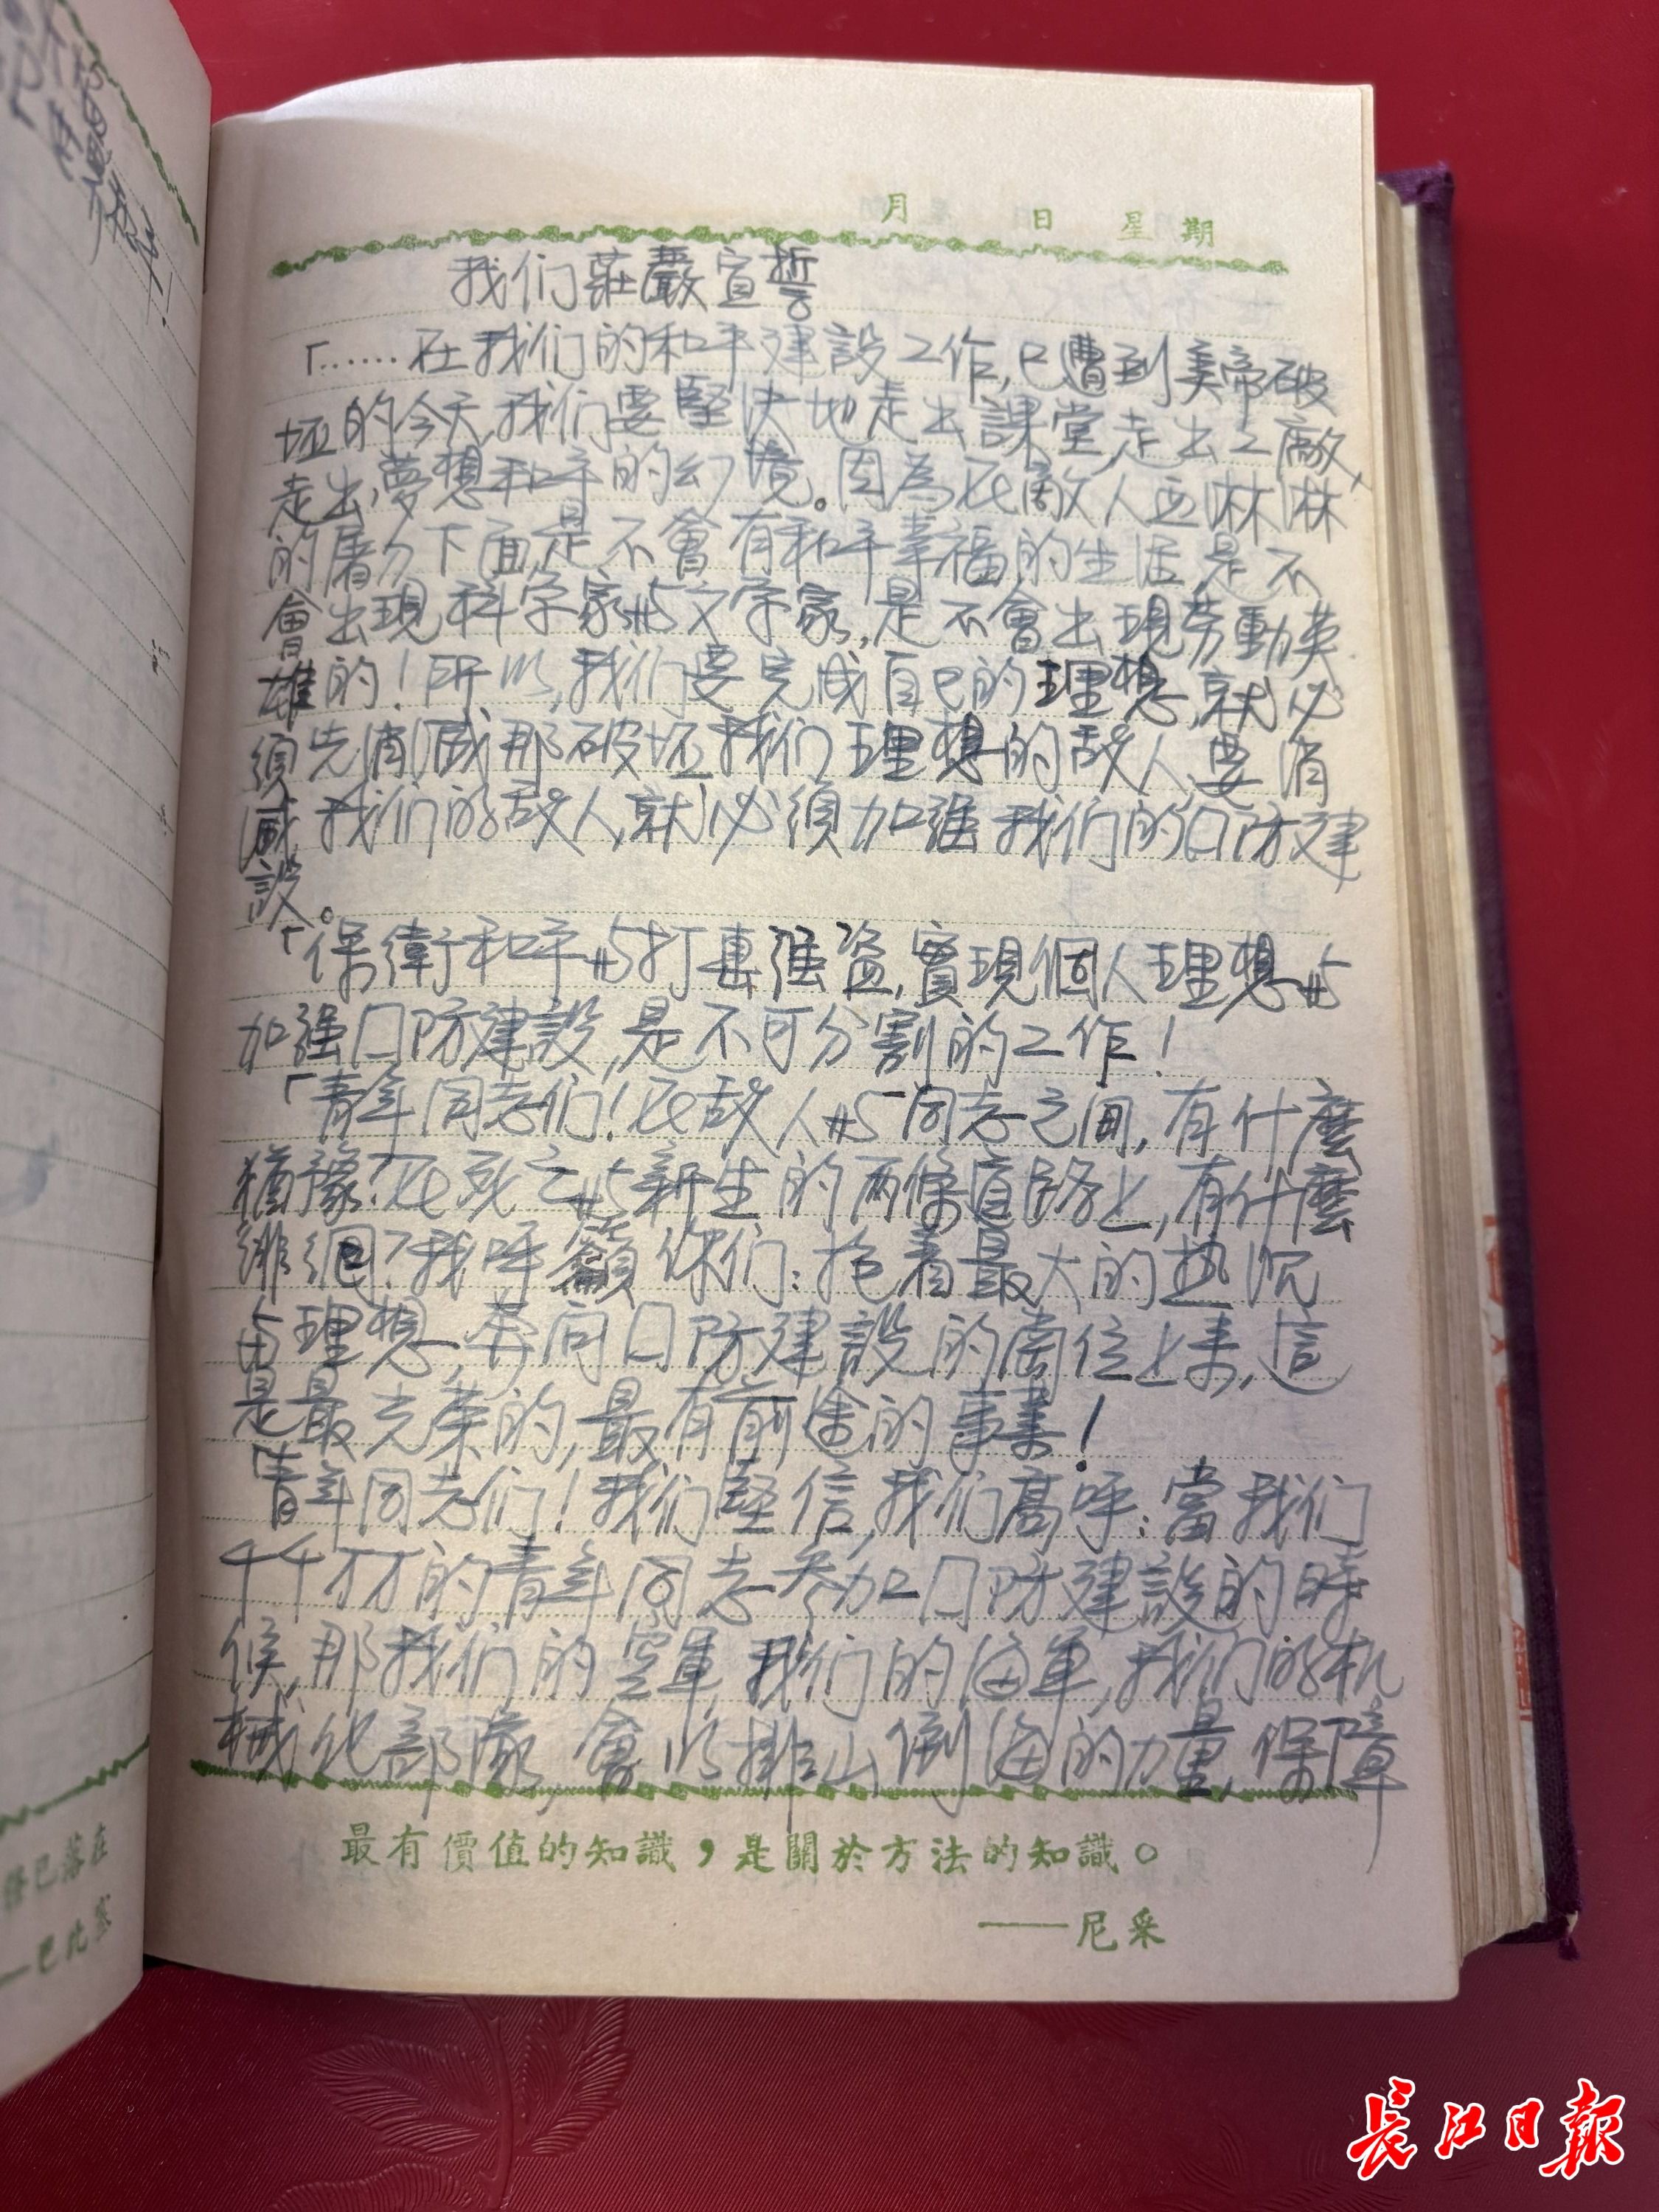 月 日 星期
我们莊嚴宣誓
「……在我们的和平建設工作,已遭到美帝破
坏的今天,我们要堅决地走出課堂,走出工廠、
走出夢想和平的幻境。因為在敵人血淋淋
的屠刀下面,是不會有和平幸福的生活,是不
會出現科学家与文学家,是不會出現劳動英
雄的!所以,我们要完成自己的理想,就必
須先消滅那破坏我们理想的敌人,要消
滅我们的敌人,就必須加强我们的口防建
設。
「保衛和平与打击强盗,實現個人理想与
加强口防建設,是不可分割的工作!
「青年同志们!在敌人与同志之间,有什麽
猶豫?在死亡与新生的两條道路上,有什麽
徘徊?我呼籲你们:抱着最大的热忱
与理想,奔向口防建設的崗位上来,這
是最光荣的,最有前途的事業!
「青年同志们!我们堅信,我们高呼:當我们
千千万万的青年同志参加口防建設的時
候,那我们的空軍,我们的海軍,我们的机
械化部隊,會以排山倒海的力量,保障
最有價值的知識,是關於方法的知識。
——尼采
已落在
——巴比塞
長江日報